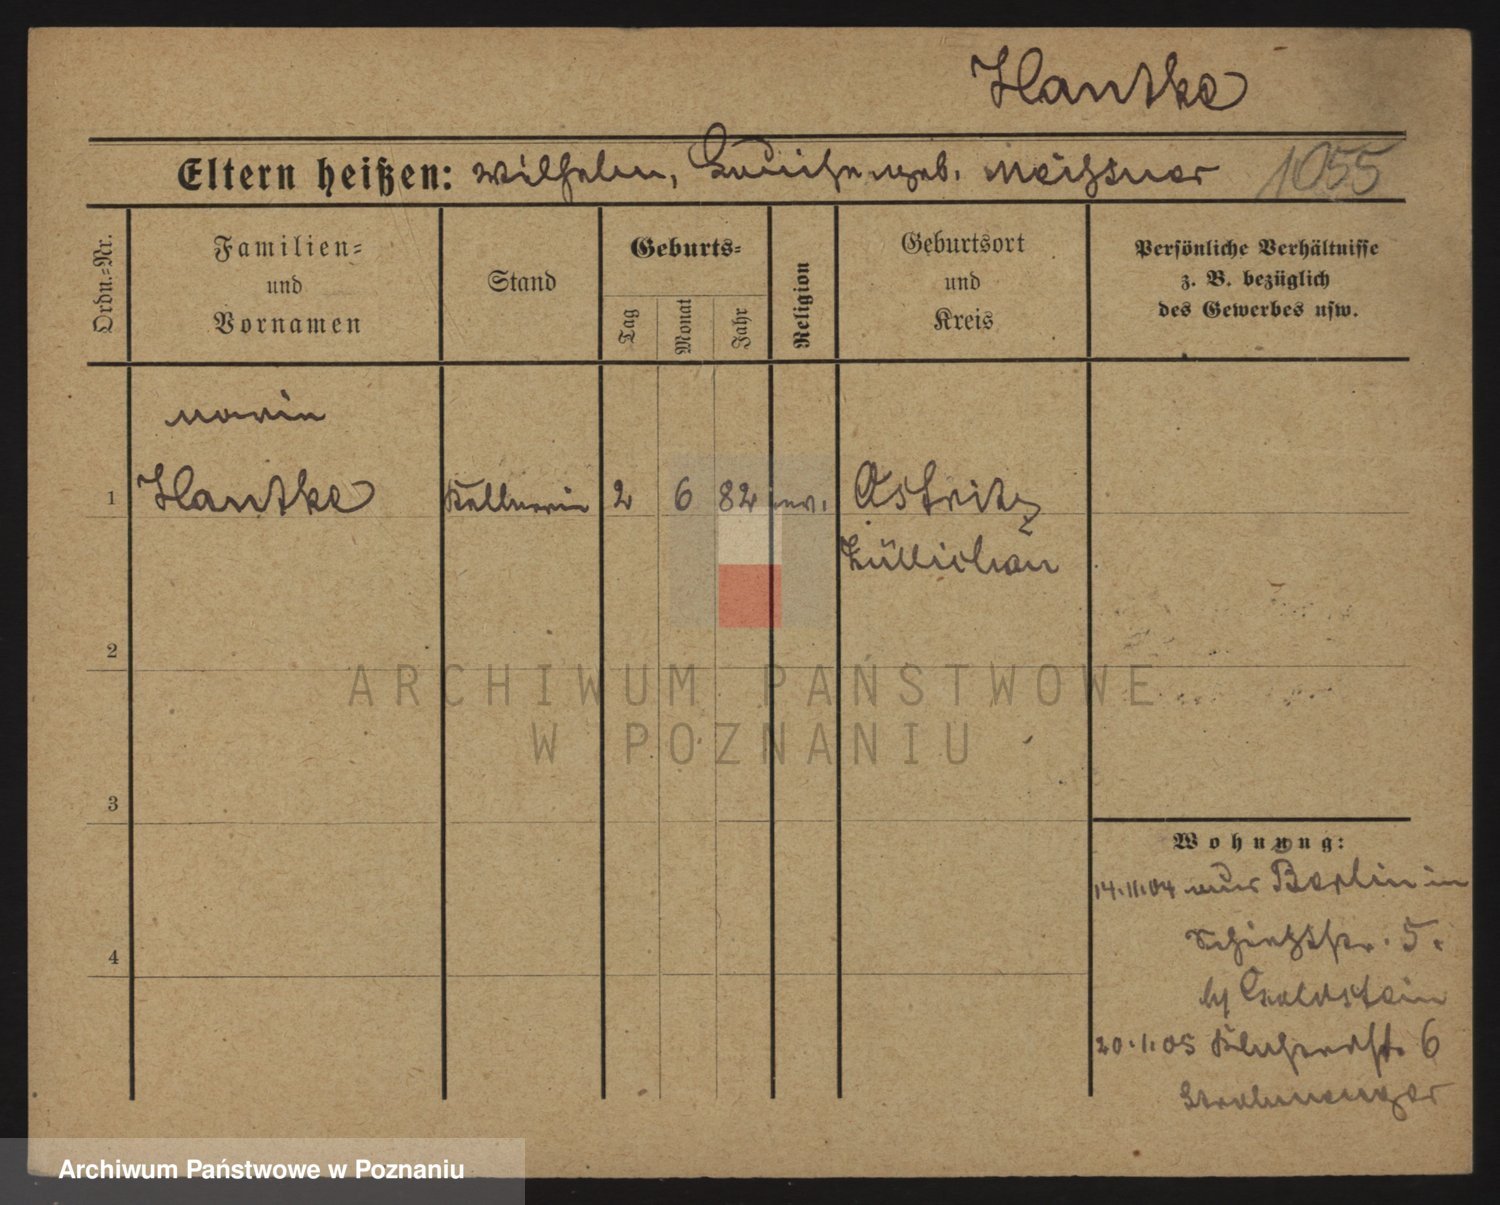 Hantke
Eltern heißen: Wilhelm, geb. 1055
Ordn.-Nr.
Familien-
und
Vornamen
Stand
Geburts-
Tag
Monat
Jahr
Religion
Geburtsort
und
Kreis
Persönliche Verhältnisse
z. B. bezüglich
des Gewerbes usw.
Marie
1 Hantke Kellnerin 2 6 82 ev. Ostritz
Züllichau
2
ARCHIWUM PAŃSTWOWE
W POZNANIU
3
Wohnung:
14.11.04 aus Berlin in
5.
by Goldstein
4
20.1.05 6
Archiwum Państwowe w Poznaniu